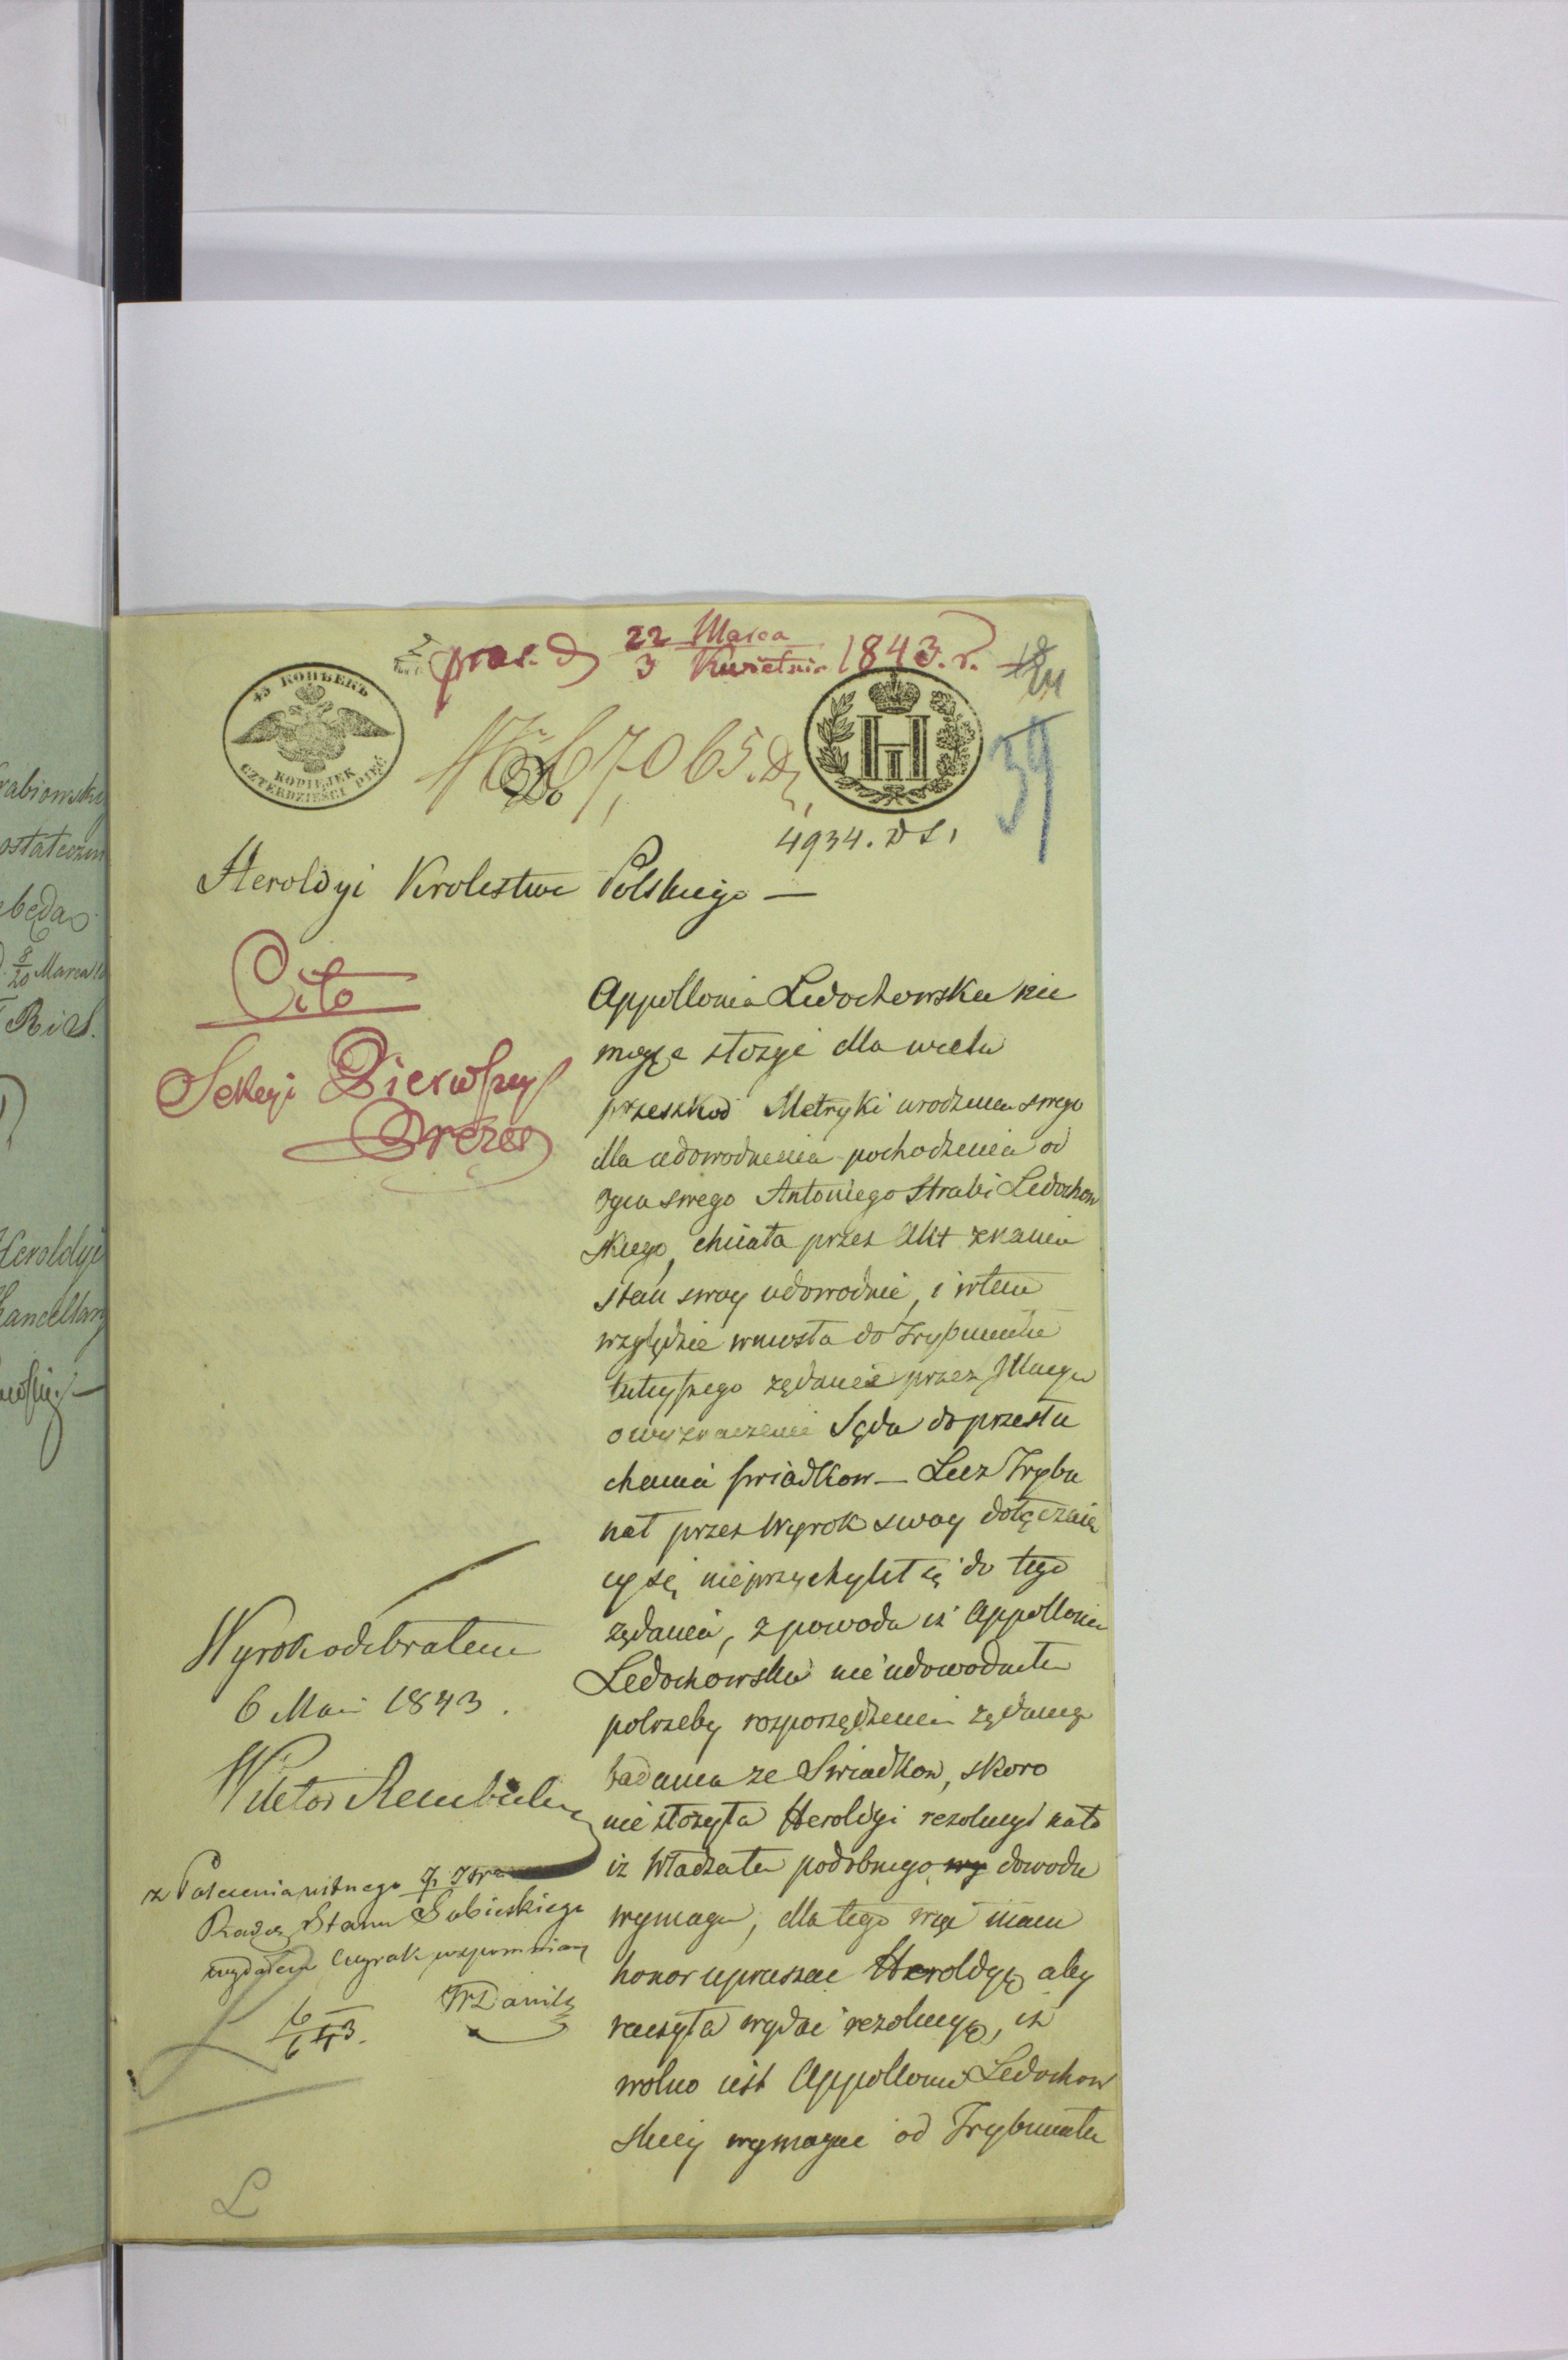 praes. d 22 Marca 1843. r.
3 Kwietnia
45 КОПѢЕКЪ
KOPIEJEK
CZTERDZIEŚCI PIĘĆ
7,065.
39
4934. DS,
Heroldyi Krolestwa Polskiego —
Cito
Sekcyi Pierwszey
Prezes
Appollonia Ledochowska nie
mogąc złożyć dla wielu
przeszkod Metryki urodzenia swego
dla udowodnienia pochodzenia od
oyca swego Antoniego Hrabi Ledochow
skiego, chciała przez Akt znania
stan swoy udowodnić, i w tem
względzie wniosła do Trybunału
tuteyszego żądanie przez
o wyznaczenie Sędu do przesłu
chania świadkow — Lecz Trybu
nał przez Wyrok swoy dołączaią
cy się nieprzychylił się do tego
żądania, z powodu iż Appollonia
Ledochowska nie udowodniła
potrzeby rozporządzenia żądanego
badania ze Swiadkow, skoro
nie złożyła Heroldyi rezolucyi na to
iż Władza ta podobnego wy dowodu
wymaga, dla tego więc mam
honor upraszać Heroldyę aby
raczyła wydać rezolucyę, iż
wolno iest Appollonii Ledochow
skiey wymagać od Trybunału
Wyrok odebrałem
6 Maia 1843.
Wiktor
z Polecenia ustnego
Radcy Stanu Sobieskiego
wydałem wyrok wspomniany
6
6 43.
L
rabiowski
ostateczn
będą
8/20 Marca
Heroldyi
Kancellary